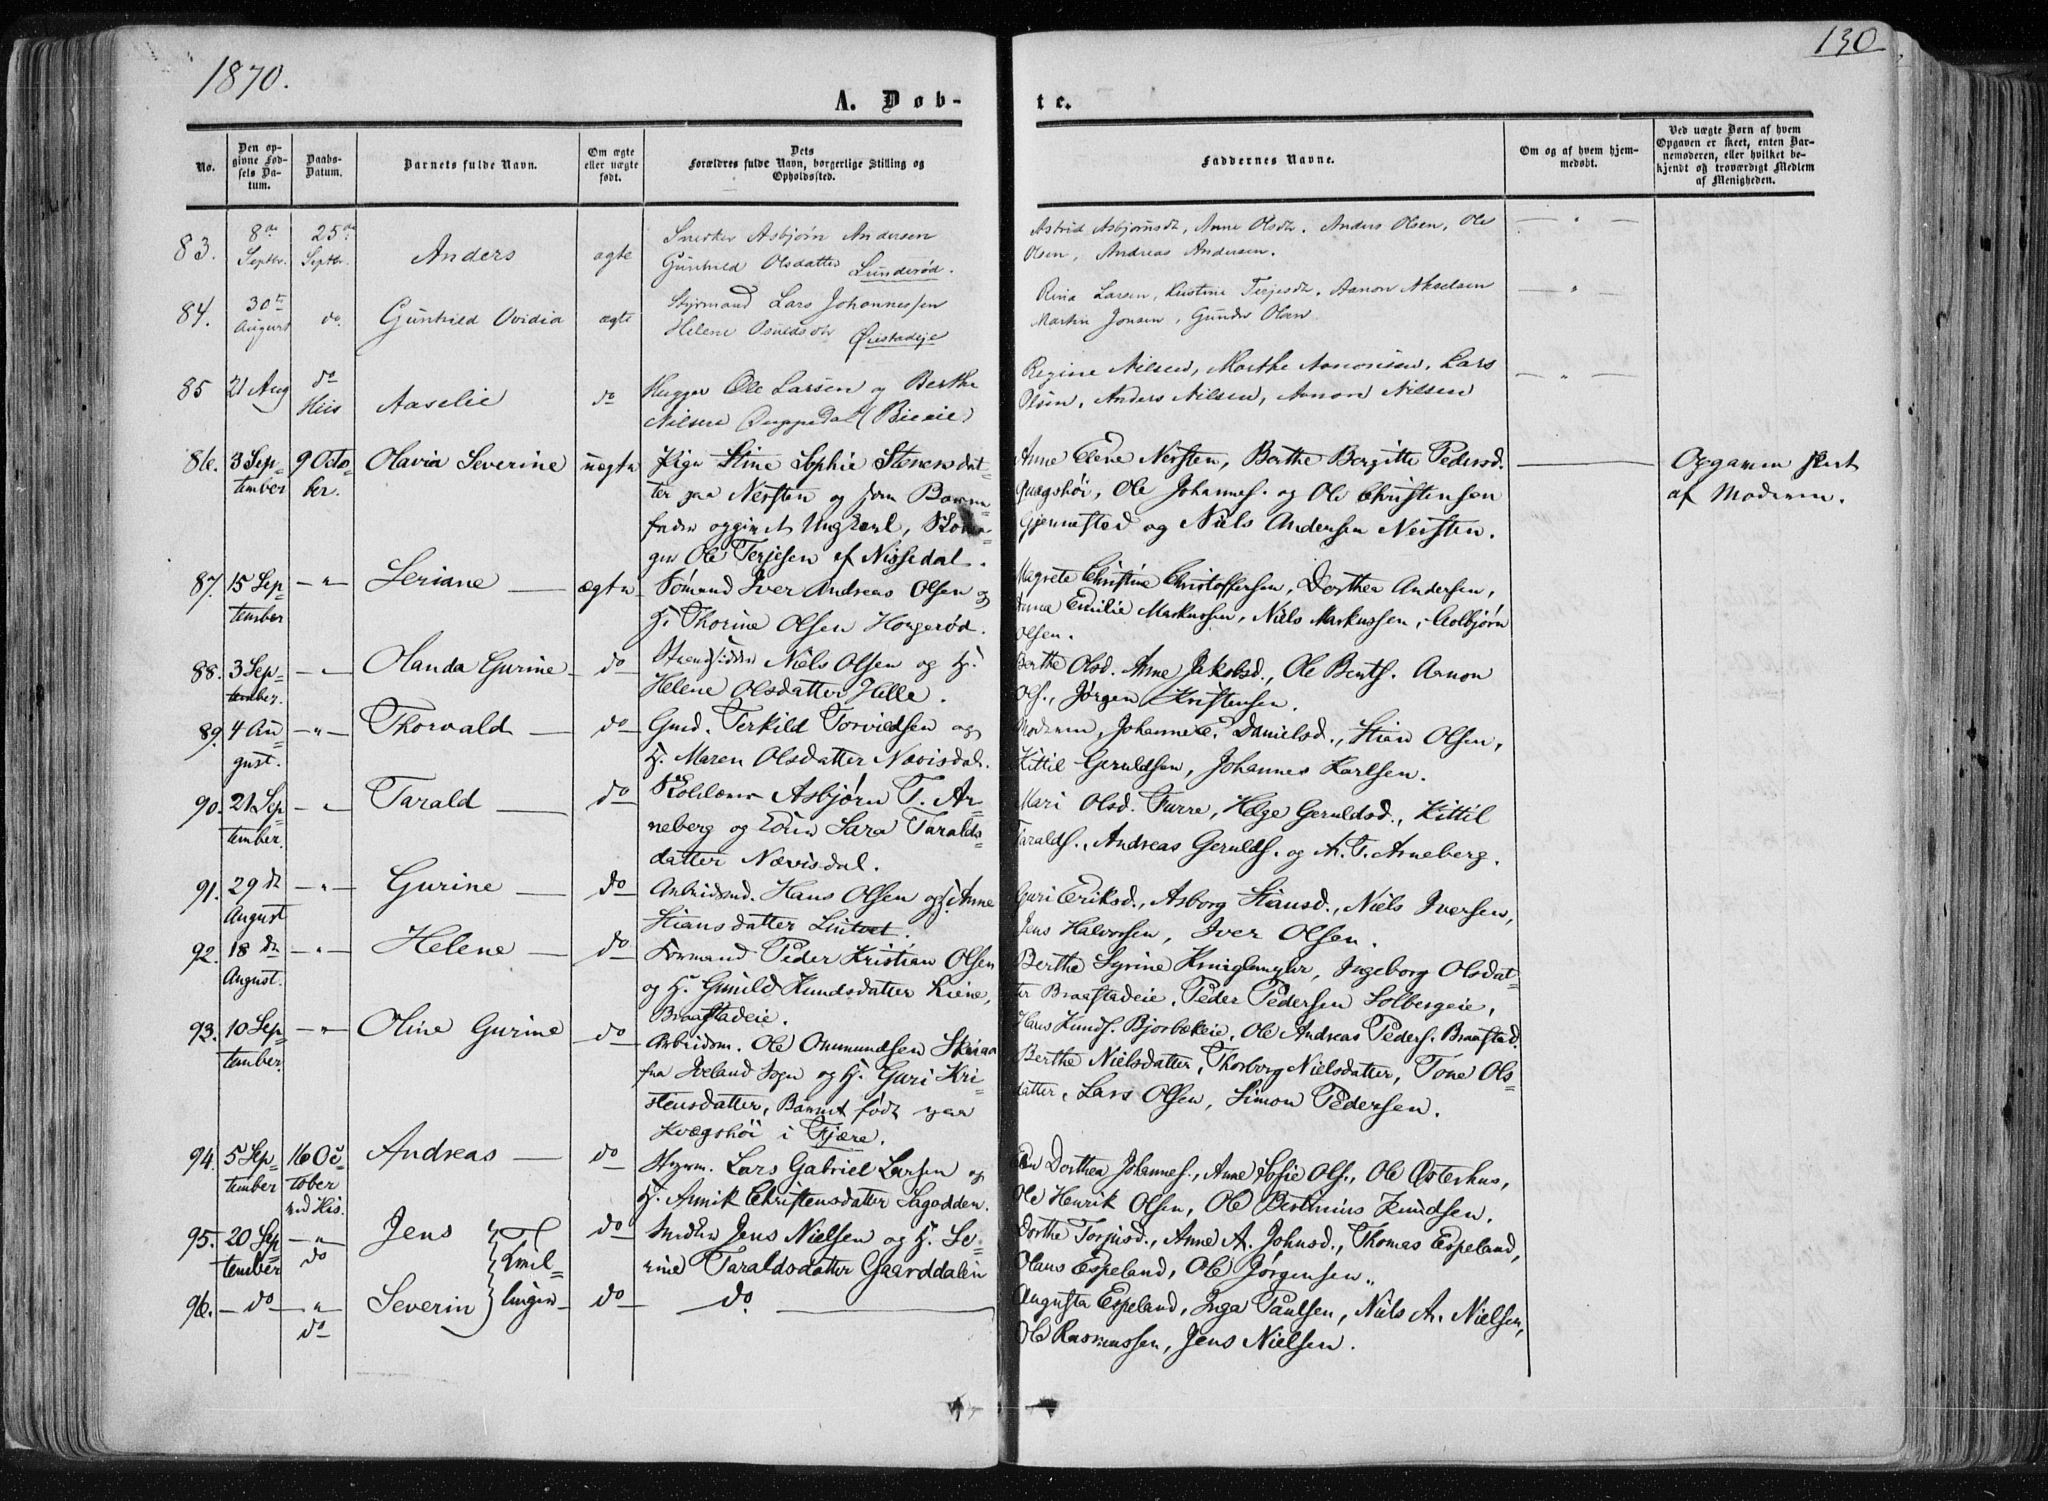 1870.
130
A. Døb-
te.
No.
Den op-
givne Fød-
sels Da-
tum.
Daabs-
Datum.
Barnets fulde Navn.
Om ægte
eller uægte
født.
Dets
Forældres fulde Navn, borgerlige Stilling og
Opholdssted.
Faddernes Navne.
Om og af hvem hjem-
medøbt.
Ved uægte Børn af hvem
Opgaven er skeet, enten Bar-
nemoderen, eller hvilket be-
kjendt og troværdigt Medlem
af Menigheden.
83. 8de Septbr. 25de Septbr. Anders ægte
Snedker Asbjørn Andersen
Gunhild Olsdatter Lunderød.
Astrid Asbjørnsdt, Anne Olsdt. Anders Olsen, Ole
Olsen, Andreas Andersen.
84. 30te August do. Gunhild Ovidia ægte
Styrmand Lars Johannessen
Helene Osuldsdtr Øiestadeje
Rina Larsen, Kristine Terjesdt. Aanon Akselsen
Martin Jonsen, Gunder Olsen
85 21 Aug do Hiis Aaselie do
Hugger Ole Larsen og Berthe
Nilsen
Regine Nilsen, Marthe Aanonsen, Lars
Olsen, Anders Nilsen, Aanon Nilsen
86. 3 Sep= 9 Octo= Olavia Severine uægte
tember ber.
Pige Stine Sophie Stenersdat=
ter paa Nersten og som Barne=
fader opgivet Ungkarl, Skoma=
ger Ole Terjesen af Nissedal.
Anne Elene Nersten, Berthe Bergitte Pedersd.
Qvægshøi, Ole Johannes. og Ole Christensen
Gjennestad og Niels Andersen Nersten.
Opgaven skeet
af Moderen.
87. 15 Sep= — " — Seriane — ægte
tember
Sømand Iver Andreas Olsen og
H. Thorine Olsen Hougerød.
Magrete Christine Christoffersen, Dorthea Andersen,
Anna Emilie Markussen, Niels Markussen, Asbjørn
Olsen.
88. 3 Sep= — " — Olanda Gurine — do
tember.
Strandsidder Niels Olsen og H.
Helene Olsdatter Helle.
Berthe Olsd. Anne Jakobsd., Ole Bents. Aanon
Ols., Jørgen Kristensen.
89. 4 Au= — " — Thorvald — do
gust.
Gmd. Terkild Torvildsen og
H. Maren Olsdatter Nævisdal.
Moderen, Johanne C. Danielsd., Stian Olsen,
Kittil Geruldsen, Johannes Karlsen.
90. 21 Sep= — " — Tarald — do
tember.
Skolelærer Asbjørn T. Ar=
neberg og Sara Taralds=
datter Nævisdal.
Mari Olsd. Furre, Helge Geruldsd., Kittil
Taralds., Andreas Gerulds. og A. T. Arneberg.
91. 29 de — " — Gurine — do
August
Arbeidsmd. Hans Olsen og H. Anne
Stiansdatter Lintvet.
Guri Eriksd., Asborg Stiansd., Niels Iversen,
Jens Halvorsen, Iver Olsen.
92. 18 de — " — Helene — do
August.
Formand Peder Kristian Olsen
og H. Gunild Knudsdatter Kiene,
Braastadeie.
Berthe Syrine, Ingeborg Olsdat=
ter Braastadeie, Peder Pedersen Solbergeie,
Hans Knuds. Bjorbækeie, Ole Andreas Peders. Braastad.
93. 10 Sep= — " — Oline Gurine do
tember.
Arbeidsm. Ole Ommundsen
fra Iveland Sogn og H. Guri Kri=
stensdatter, Barnet født paa
Kvægshöi i Fjære.
Berthe Nielsdatter, Thorborg Nielsdatter, Tone Ols=
datter, Lars Olsen, Simon Pedersen.
94. 5 Sep= 16 Oc= Andreas — do
tember tober
ved His.
Styrm. Lars Gabriel Larsen og
H. Annik Christensdatter Sagodden.
Dorthea Johannes., Anne Sofie Ols., Ole Osterhus,
Ole Henrik Olsen, Ole Bertinius Knudsen.
95. 20 Sep= — " — Jens do
tember do
Tvil=
lingen
Snedker Jens Nielsen og H. Se=
rine Taraldsdatter Gaarddalen
Dorthe Torjusd., Anne A. Johnsd., Thomas Espeland,
Olaus Espeland, Ole Jørgensen.
96. — do — " Severin do do
do
Augusta Espeland, Inga Paulsen, Niels A. Nielsen,
Ole Rasmussen, Jens Nielsen.